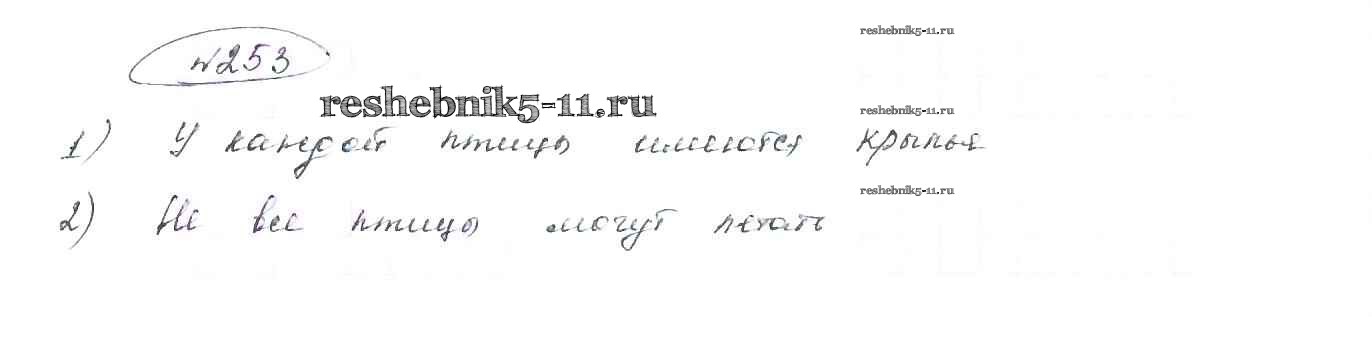 reshebnik5-11.ru
№253
reshebnik5-11.ru
reshebnik5-11.ru
1) У каждой птицы имеются крылья
reshebnik5-11.ru
2) Не все птицы могут летать